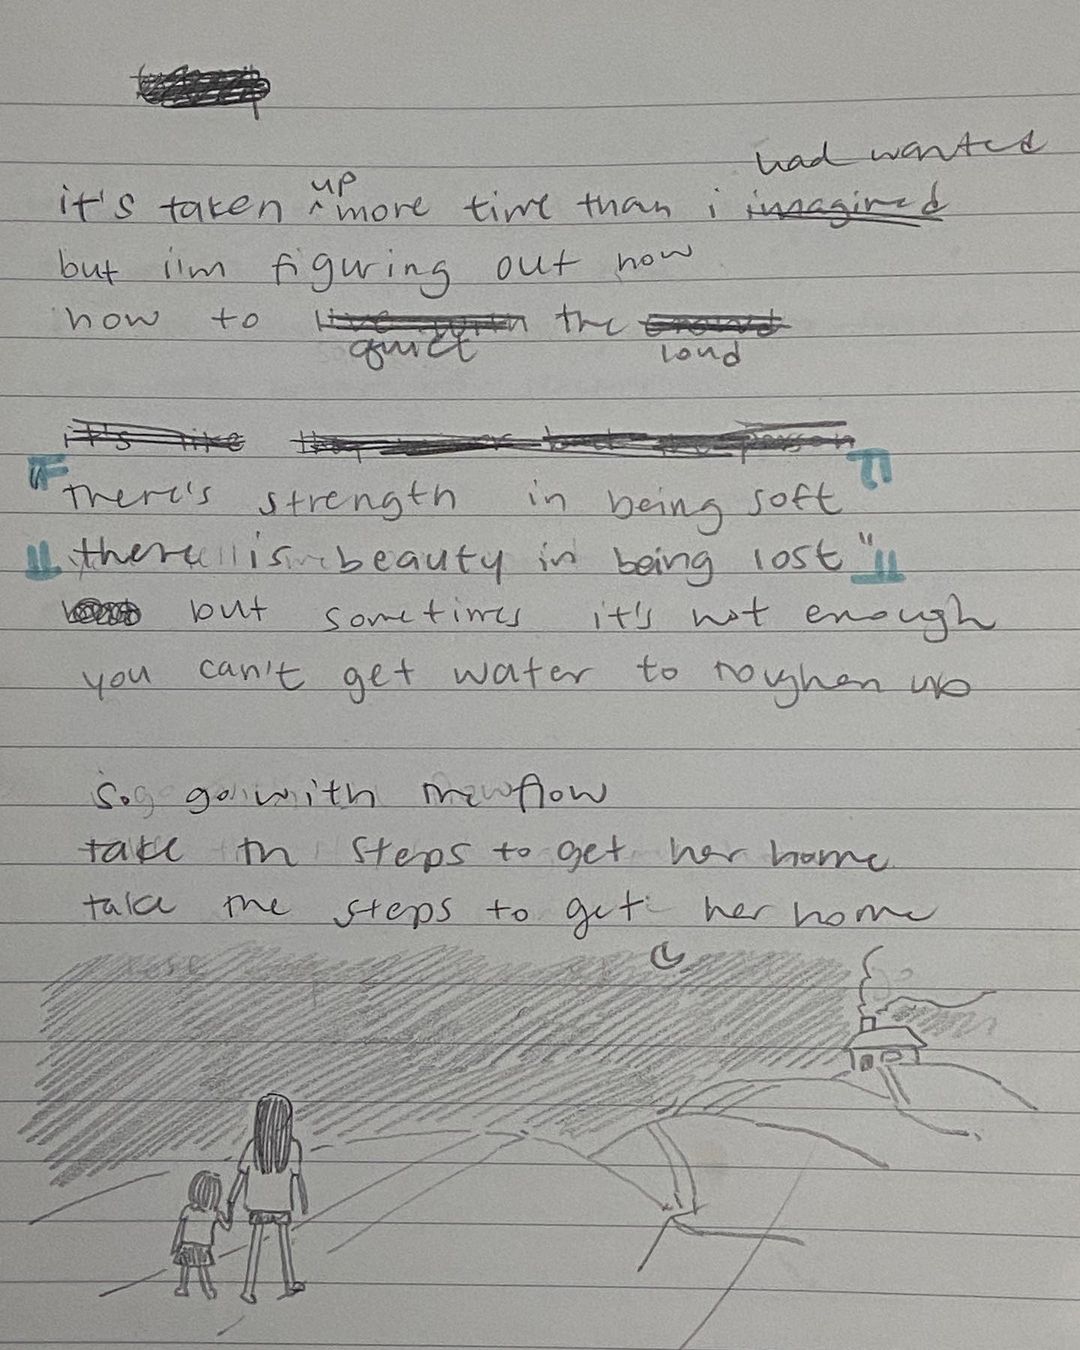 had wanted
it's taken up more time than i imagined
but i'm figuring out now
how to live with the crowd
quiet loud
it's like they person
there's strength in being soft
there is beauty in being lost"
but sometimes it's not enough
you can't get water to roughen up
so go with the flow
take th steps to get her home
take the steps to get her home